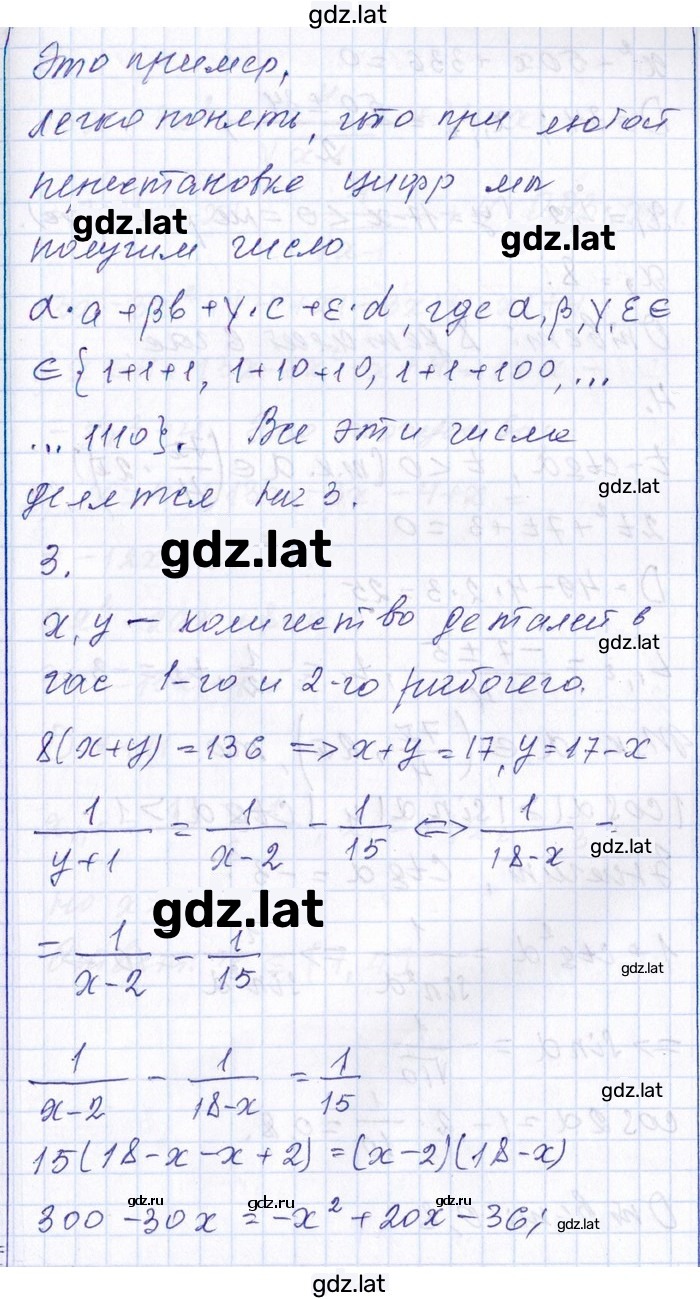 gdz.lat
Это пример,
легко понять, что при любой
перестановке цифр мы
gdz.lat
gdz.lat
получим число
α·a+βb+γ·c+ε·d, где α,β,γ,ε∈
∈{1+1+1, 1+10+10, 1+1+100,...
...1110}. Все эти числа
gdz.lat
делятся на 3.
gdz.lat
3.
x,y — количество деталей в
gdz.lat
час 1-го и 2-го рабочего.
8(x+y)=136 => x+y=17, y=17-x
1/(y+1) = 1/(x-2) - 1/15 <=> 1/(18-x) =
gdz.lat
gdz.lat
= 1/(x-2) - 1/15
gdz.lat
1/(x-2) - 1/(18-x) = 1/15
gdz.lat
15(18-x-x+2)=(x-2)(18-x)
gdz.ru gdz.ru gdz.ru
300-30x=-x²+20x-36;
gdz.lat
gdz.lat